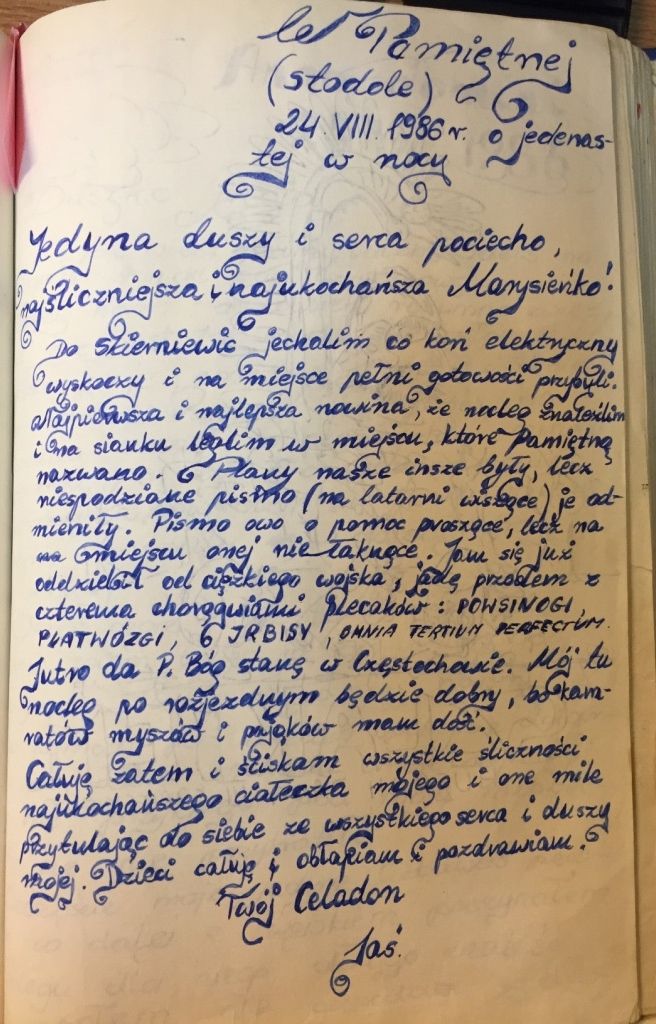 w Pamiętnej
(stodole)
24. VIII. 1986 r. o jedenas-
tej w nocy
Jedyna duszy i serca pociecho,
najśliczniejsza i najukochańsza Marysieńko!
Do Skierniewic jechalim co koń elektryczny
wyskoczy i na miejsce pełni gotowości przybyli.
Najpierwsza i najlepsza nowina, że nocleg znaleźlim
i na sianku leglim w miejscu, które Pamiętną
nazwano. Plany nasze insze były, lecz
niespodziane pismo (na latarni wiszące) je od-
mieniły. Pismo owo o pomoc proszące, lecz na
miejscu onej nie łaknące. Jam się już
oddzielił od ciężkiego wojska, jadę przodem z
czterema chorągwiami plecaków: POWSINOGI,
PŁATWÓZGI, 6 IRBISY, OMNIA TERTIUM PERFECTUM.
Jutro da P. Bóg stanę w Częstochowie. Mój tu
nocleg po rozjezdnym będzie dobry, bo kam-
ratów myszów i pająków mam dość.
Całuję zatem i ściskam wszystkie śliczności
najukochańszego ciałeczka mojego i one mile
przytulając do siebie ze wszystkiego serca i duszy
mojej. Dzieci całuję i obłapiam i pozdrawiam.
Twój Celadon
Jaś.